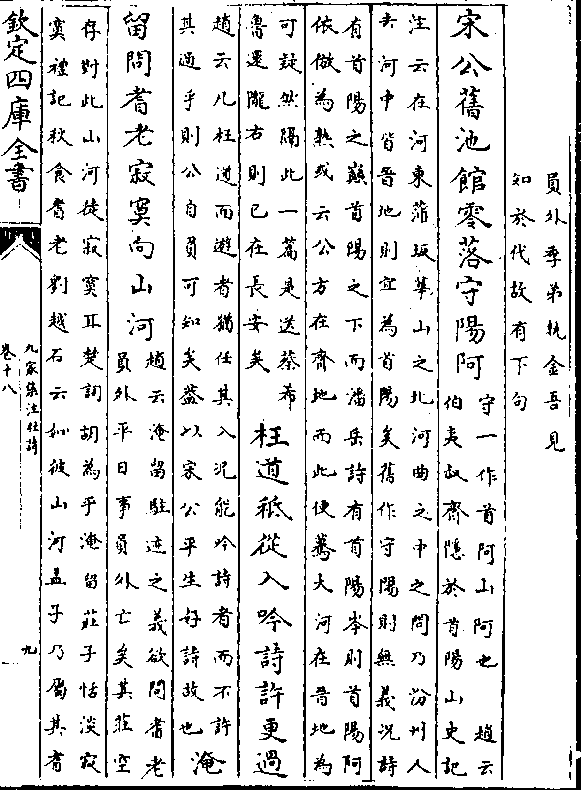 員外季弟執金吾見
知於代故有下句
宋公舊池館零落守陽阿
守一作首阿山阿也　趙云
伯夷叔齊隱於首陽山史記
注云在河東蒲坂華山之北河曲之中之問乃汾州人
去河中皆晉地則宜為首陽矣舊作守陽則無義况詩
有首陽之巔首陽之下而潘岳詩有首陽岑則首陽阿
依倣為熟或云公方在齊地而此使驀大河在晉地為
可疑然隔此一篇是送蔡希
魯還隴右則已在長安矣
枉道秪從入吟詩許更過
趙云凡枉道而遊者猶任其入况能吟詩者而不許
其過乎則公自員可知矣葢以宋公平生好詩故也
淹
留問耆老寂寞向山河
趙云淹留駐迹之義欲問耆老
員外平日事員外亡矣其莊空
存對此山河徒寂寞耳楚詞胡為乎淹留莊子恬淡寂
寞禮記秋食耆老劉越石云如彼山河孟子乃屬其耆
欽定四庫全書
九家集注杜詩
卷十八
九